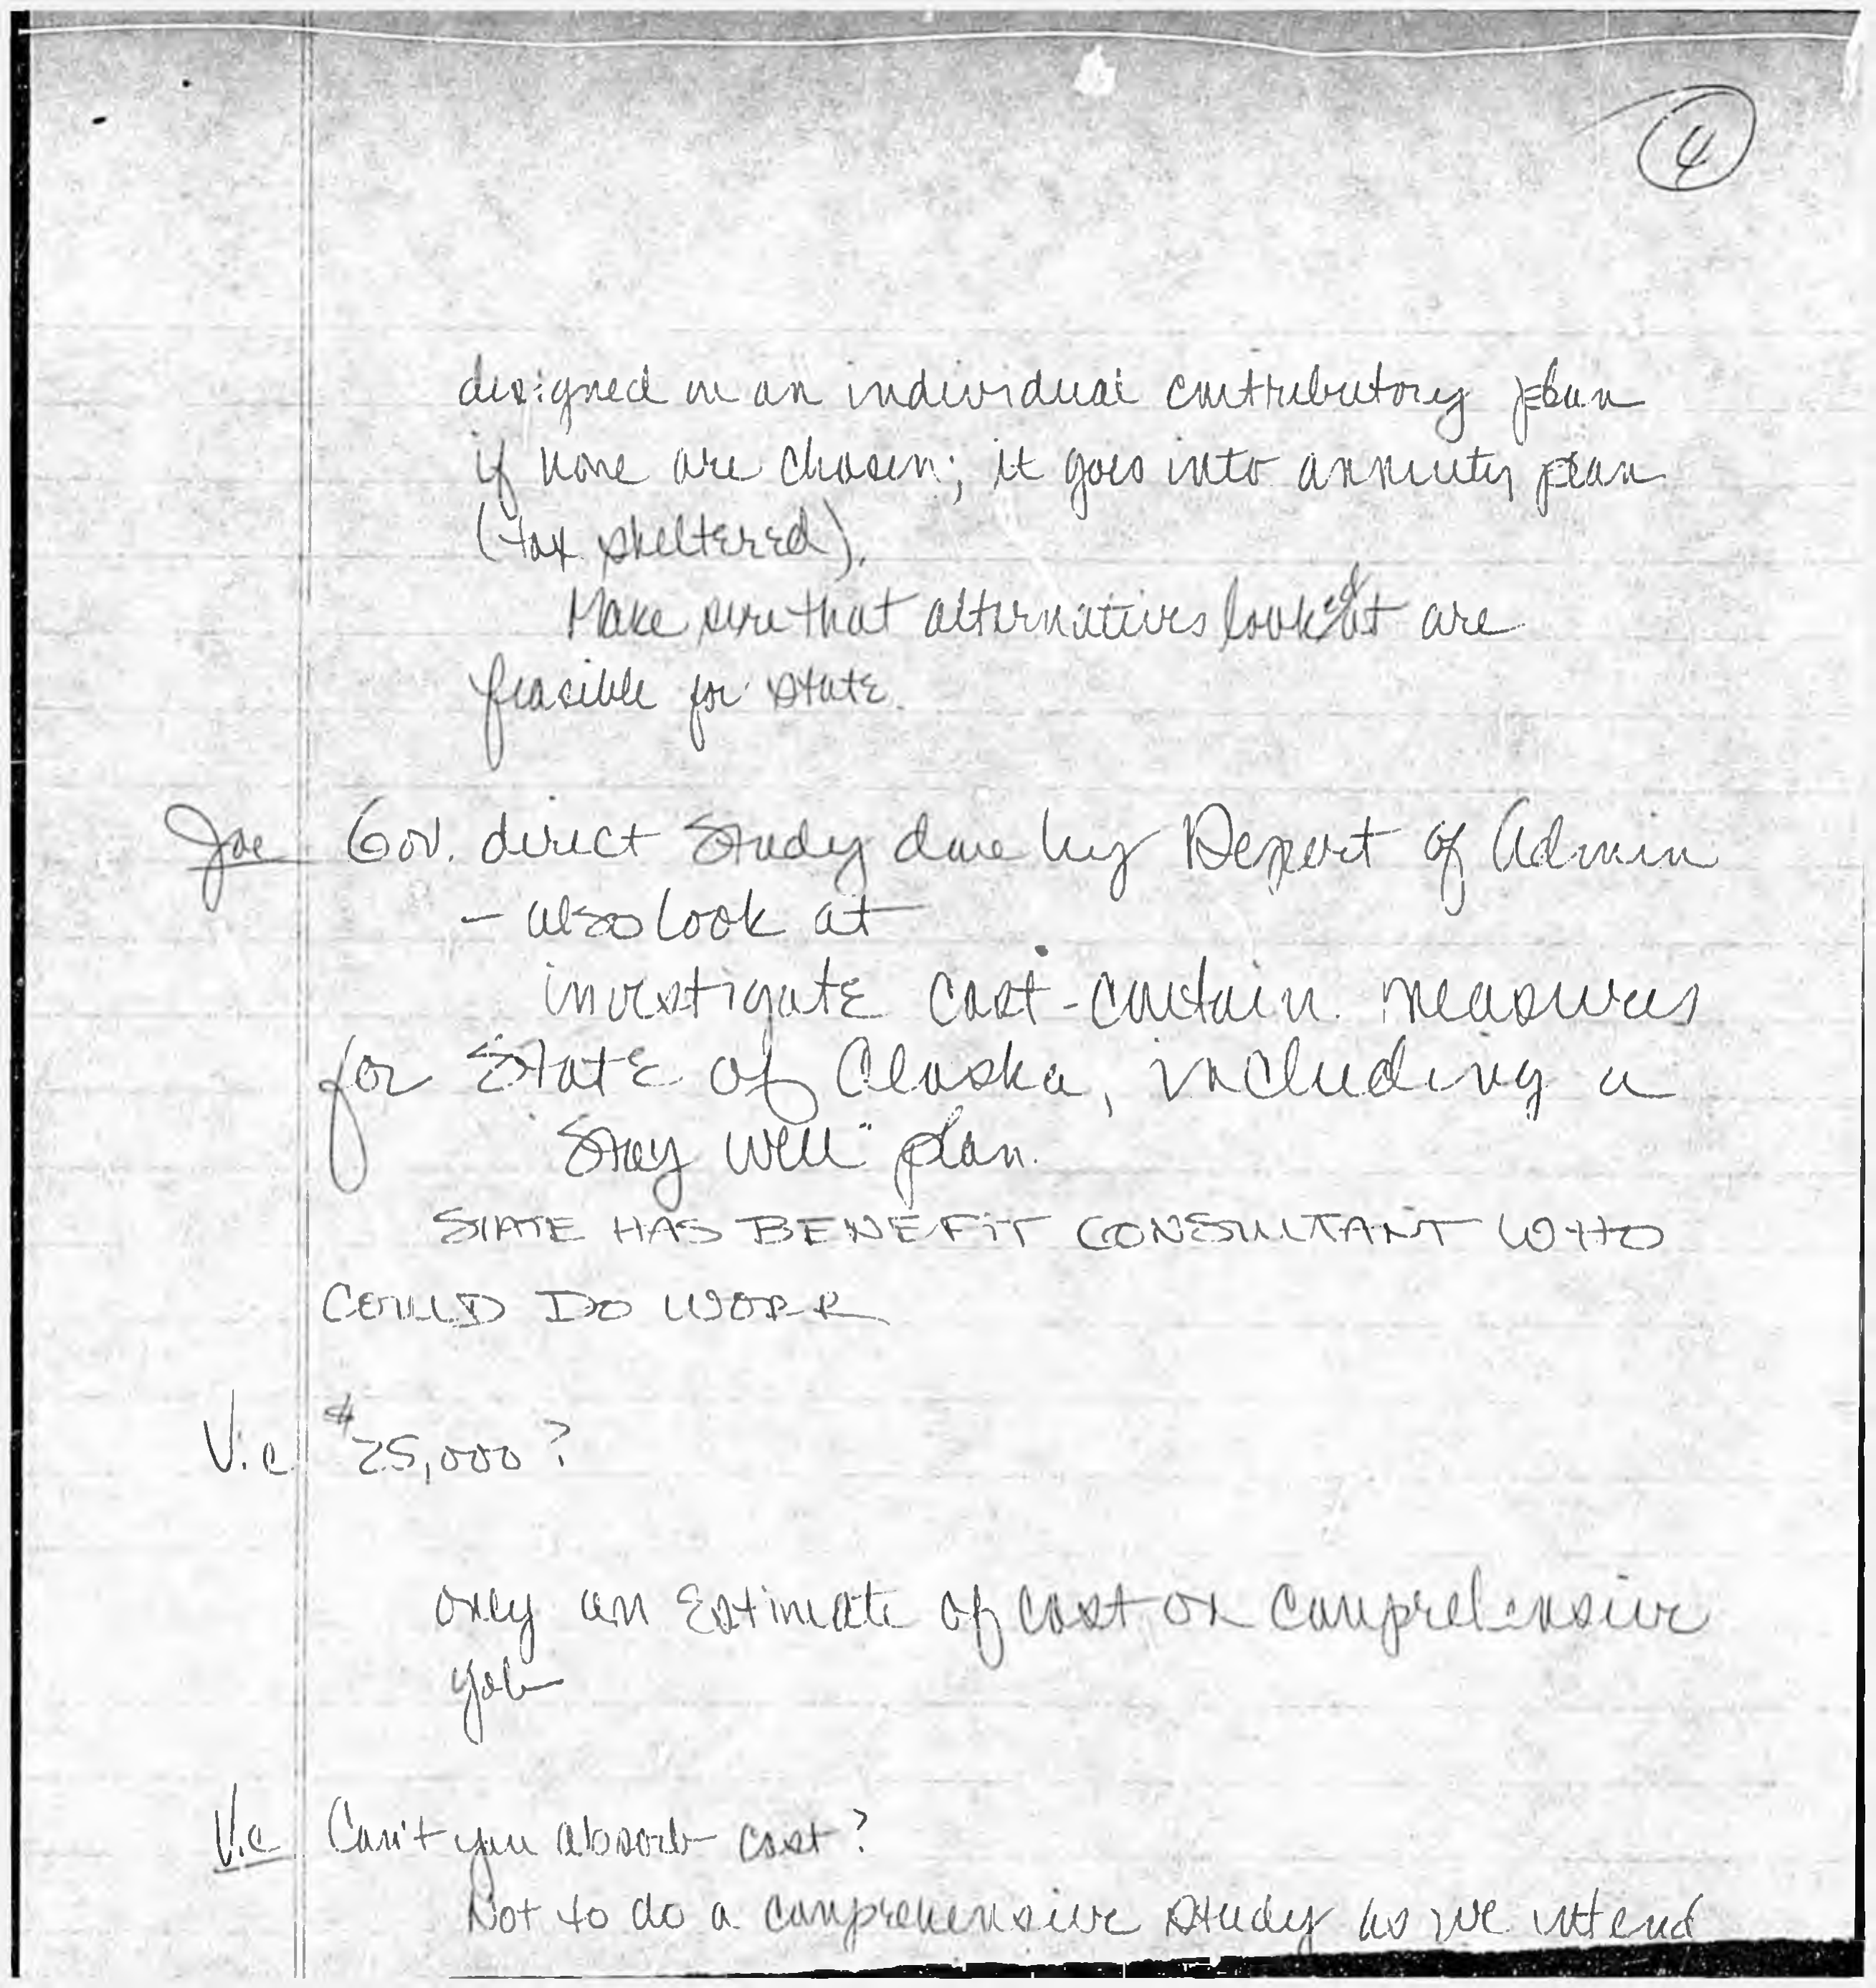 4
designed in an individual contributory plan
if none are chosen; it goes into annuity plan
(tax sheltered).
Make sure that alternatives looked at are
feasible for state.
Joe Gov. direct Study done by Depart of Admin
- also look at
investigate cost-contain. measures
for State of Alaska, including a
"Stay well" plan.
STATE HAS BENEFIT CONSULTANT WHO
COULD DO WORK
V.c $25,000?
only an Estimate of cost on comprehensive
job
V.c Can't you absorb cost?
Not to do a comprehensive study as we intend